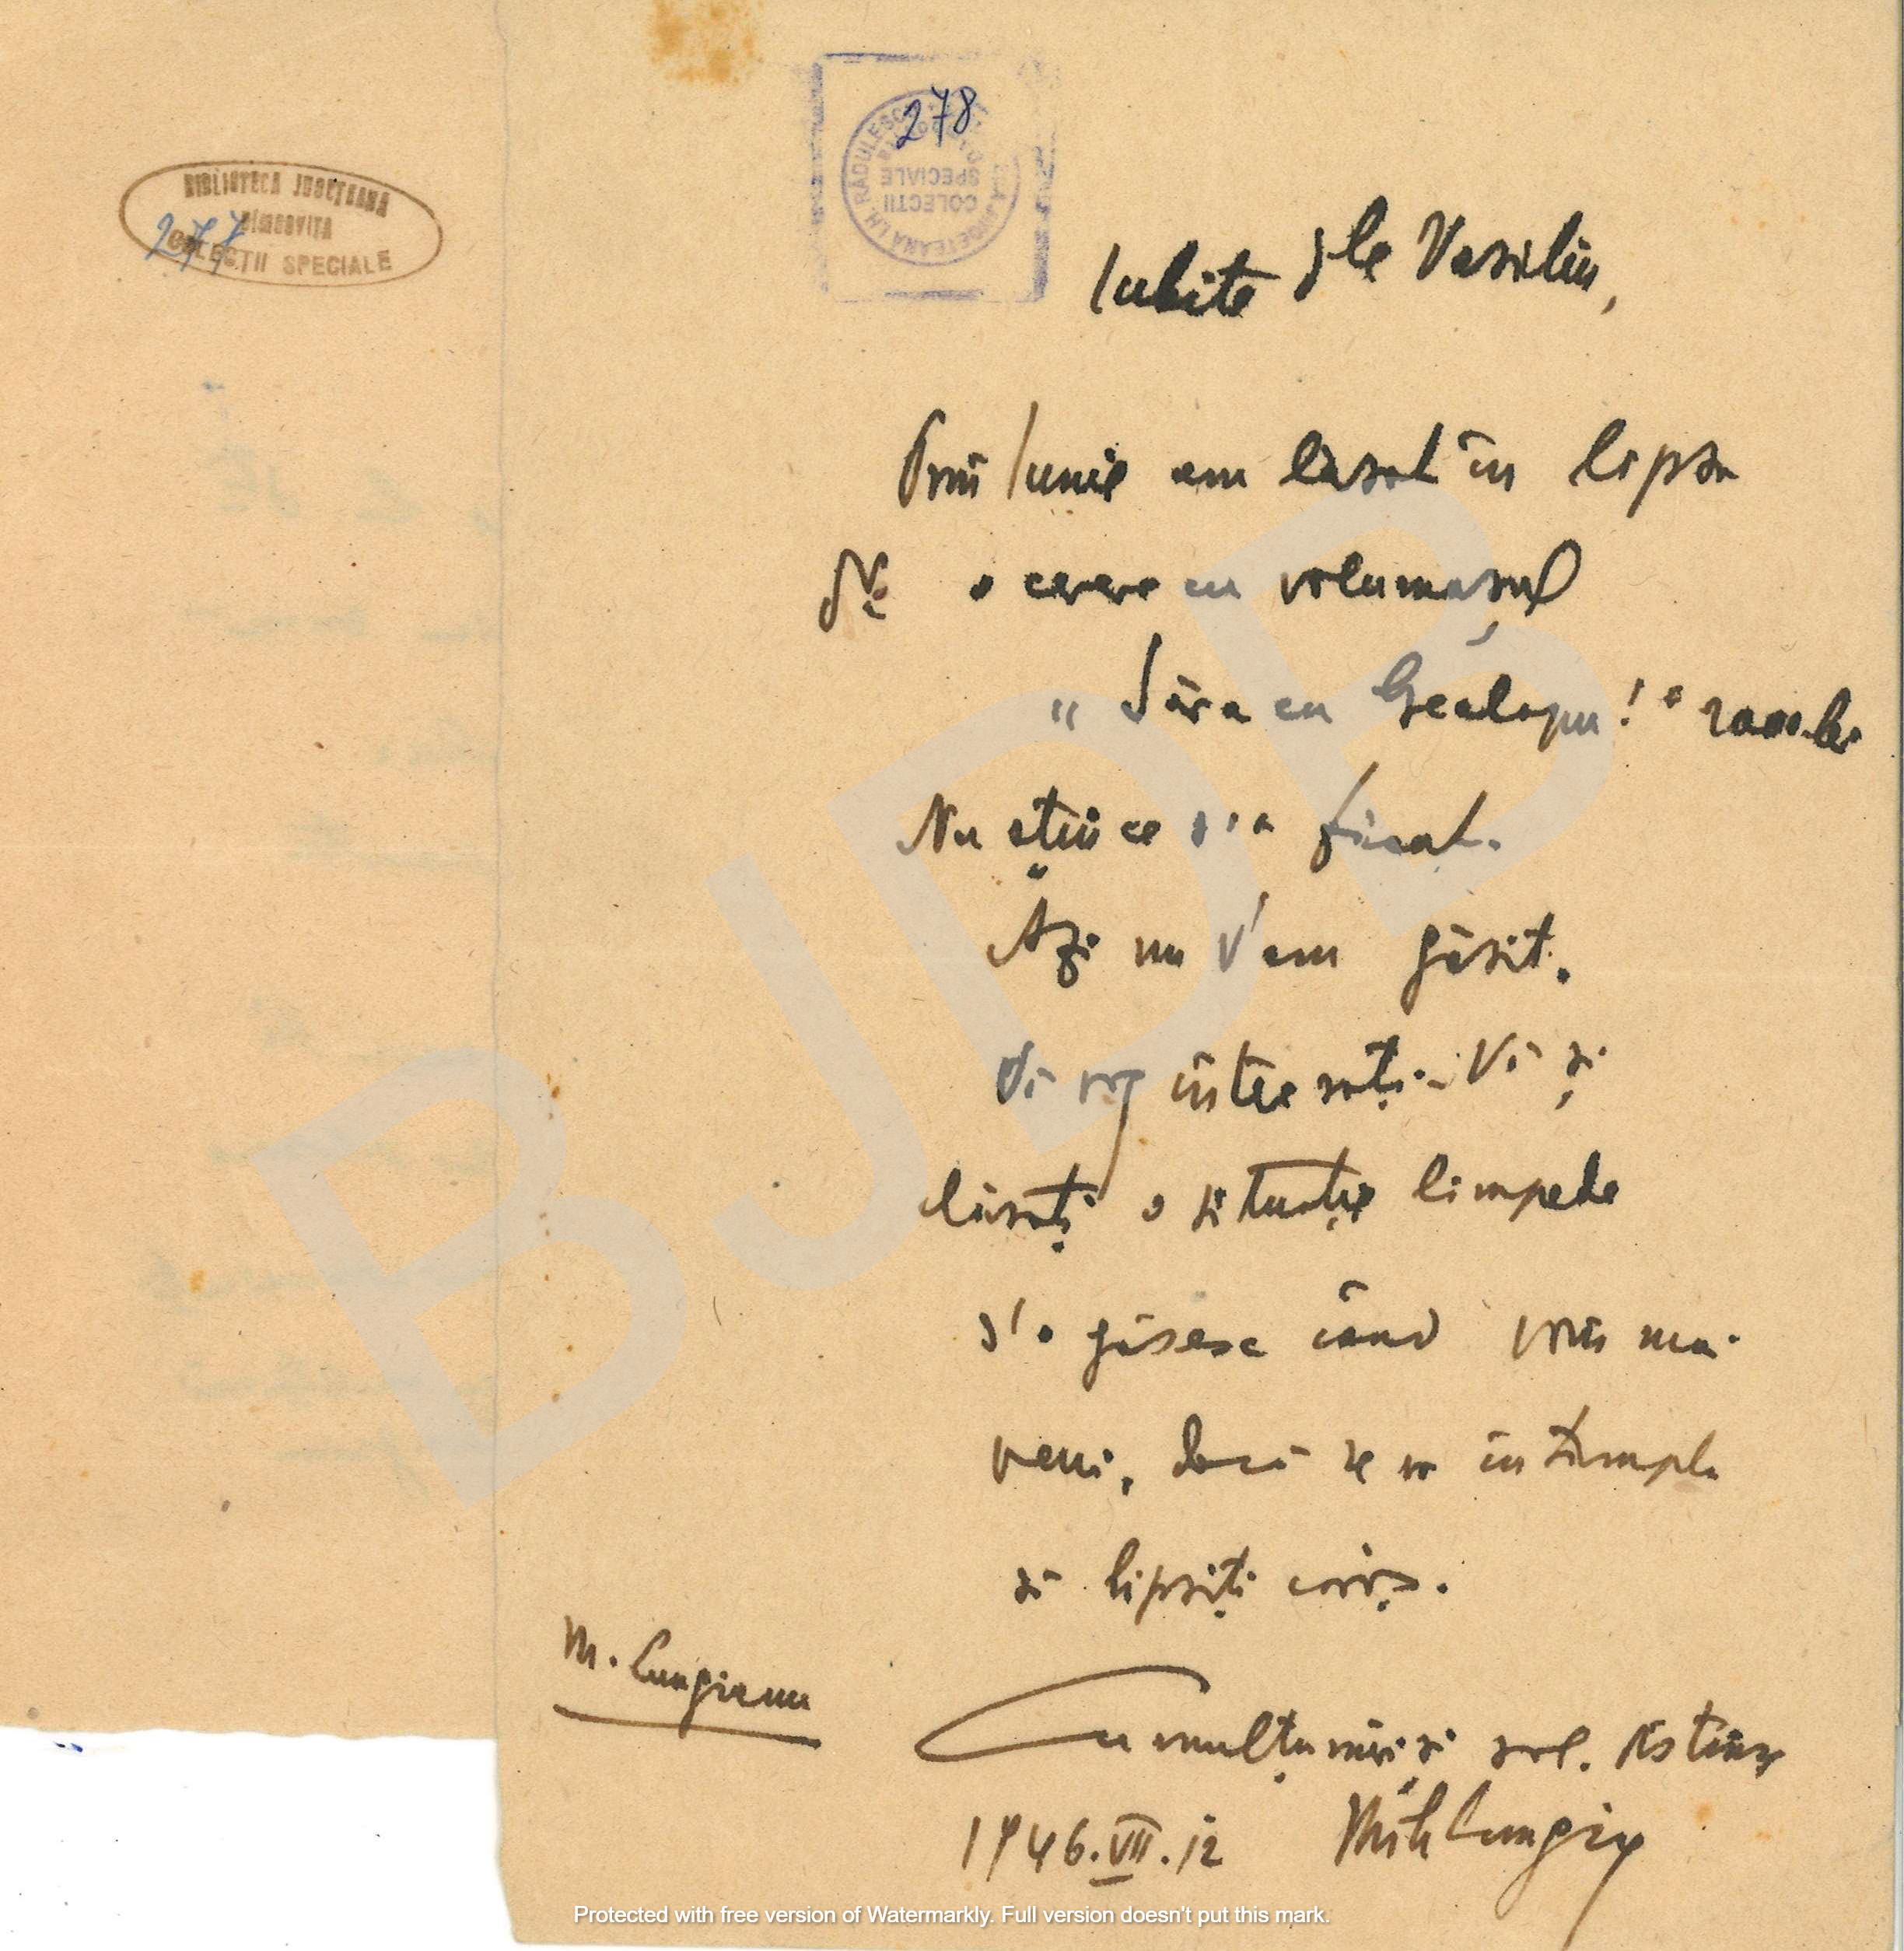 BIBLIOTECA JUDEȚEANA
DÎMBOVIȚA
COLECȚII SPECIALE
277
278
COLECTII
SPECIALE
Iubite dle Vasiliu,
Prin Iunie am lăsat în lipsa
Dv. o cerere cu volumașul
„ Sara cu Gealapu! " 2000 lei
Nu știu ce s'a făcut.
Azi nu V'am găsit.
Vă rog interesați-Vă și
lăsați o situație limpede
s'o găsesc când voiu mai
veni, dacă se va întâmpla
să lipsiți
M. Lungianu
Cu mulțumiri și sal. distinse
1946.VII.12 Mih Lungia
BJDB
Protected with free version of Watermarkly. Full version doesn't put this mark.